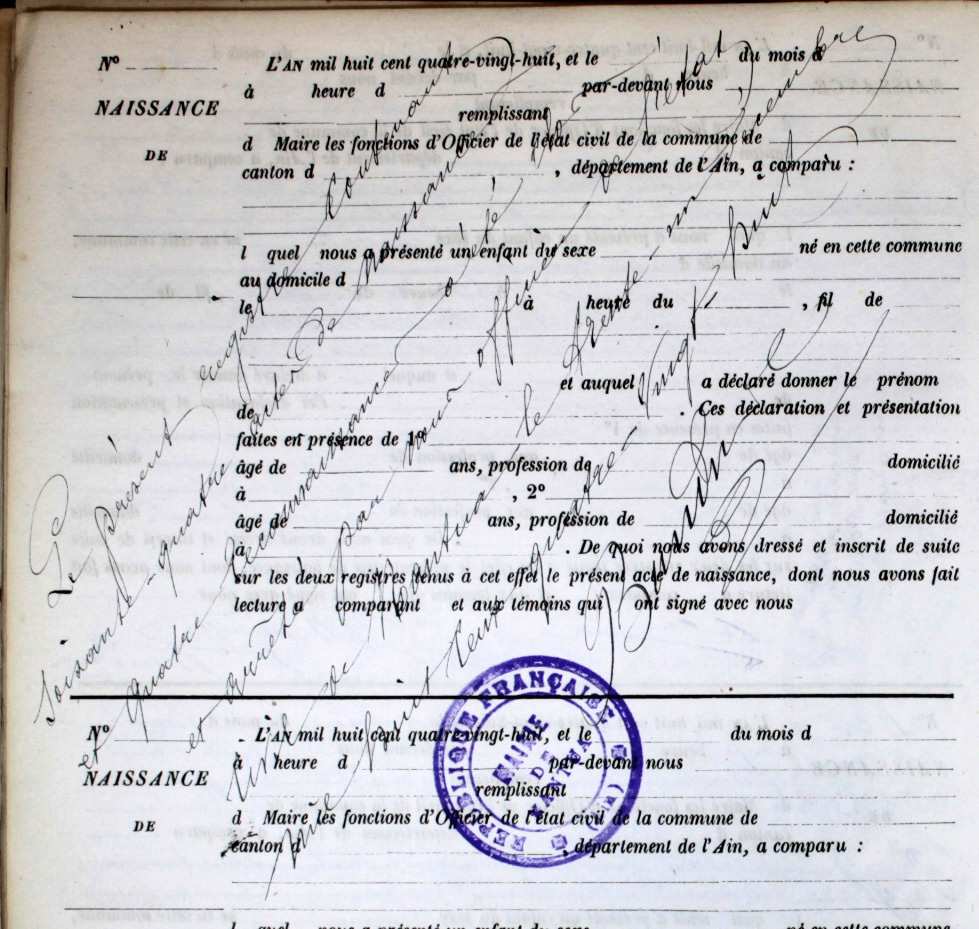 N°
L'AN mil huit cent quatre-vingt-huit, et le du mois d
à heure d par-devant nous
NAISSANCE
remplissant
DE
d Maire les fonctions d'Officier de l'état civil de la commune de
canton d , département de l'Ain, a comparu :
l quel nous a présenté un enfant du sexe né en cette commune
au domicile d
le à heure du , fil de
et auquel a déclaré donner le prénom
de . Ces déclaration et présentation
faites en présence de 1°
âgé de ans, profession de domicilié
à , 2°
âgé de ans, profession de domicilié
à . De quoi nous avons dressé et inscrit de suite
sur les deux registres tenus à cet effet le présent acte de naissance, dont nous avons fait
lecture a comparant et aux témoins qui ont signé avec nous
Le présent registre contenant
soixante-quatre actes de naissance
et quatre reconnaissances a été clos
et arrêté par nous officier de l'état
civil de Nantua le trente-un décembre
mil huit cent quatre-vingt-huit
RÉPUBLIQUE FRANÇAISE
MAIRIE
DE
NANTUA
N°
. L'AN mil huit cent quatre-vingt-huit, et le du mois d
à heure d par-devant nous
NAISSANCE
remplissant
DE
d Maire les fonctions d'Officier de l'état civil de la commune de
canton d , département de l'Ain, a comparu :
l quel nous a présenté un enfant du sexe né en cette commune